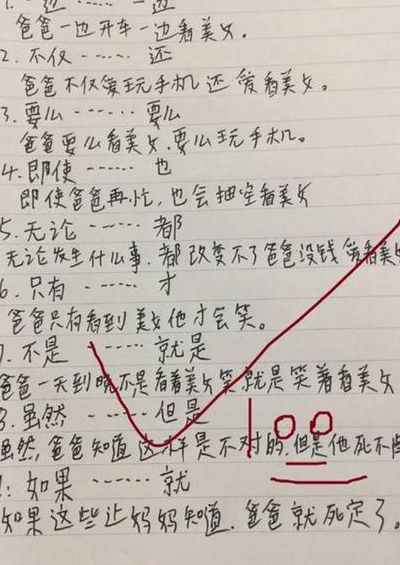 1. 一边 ······ 一边
爸爸一边开车一边看美女。
2. 不仅 ······ 还
爸爸不仅爱玩手机还爱看美女。
3. 要么 ······ 要么
爸爸要么看美女.要么玩手机。
4. 即使 ······ 也
即使爸爸再忙,也会抽空看美女
5. 无论 ······ 都
无论发生什么事.都改变不了爸爸没钱爱看美女
6. 只有 ······ 才
爸爸只有看到美女他才会笑。
7. 不是 ······ 就是
爸爸一天到晚不是看着美女笑就是笑着看美女
8. 虽然 ······ 但是
虽然,爸爸知道这样是不对的.但是他死不
100
如果 ······ 就
如果这些让妈妈知道.爸爸就死定了。